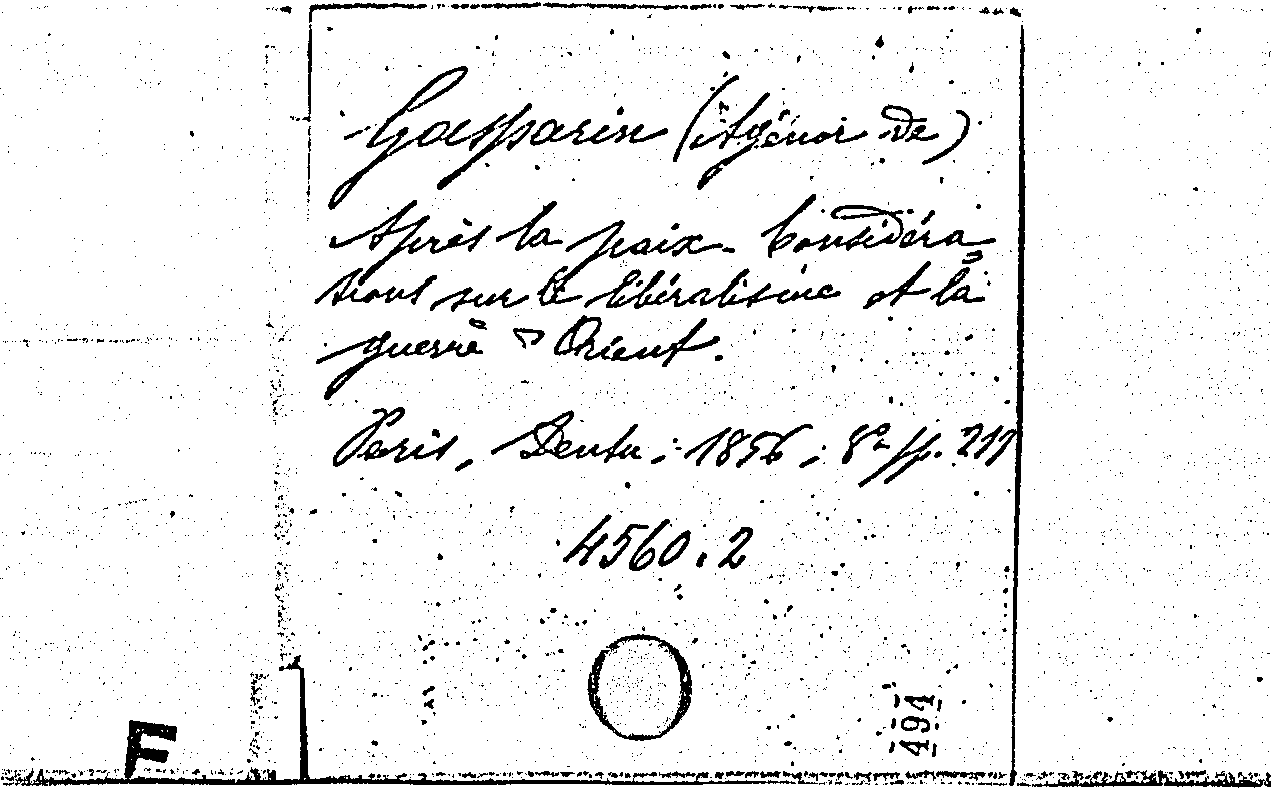 Gasparin (Agénor de)
Après la paix - Considéra
tions sur le libéralisme et la
guerre d'Orient.
Paris, Dentu ; 1856 ; 8° pp. 217
4560.2
494
F